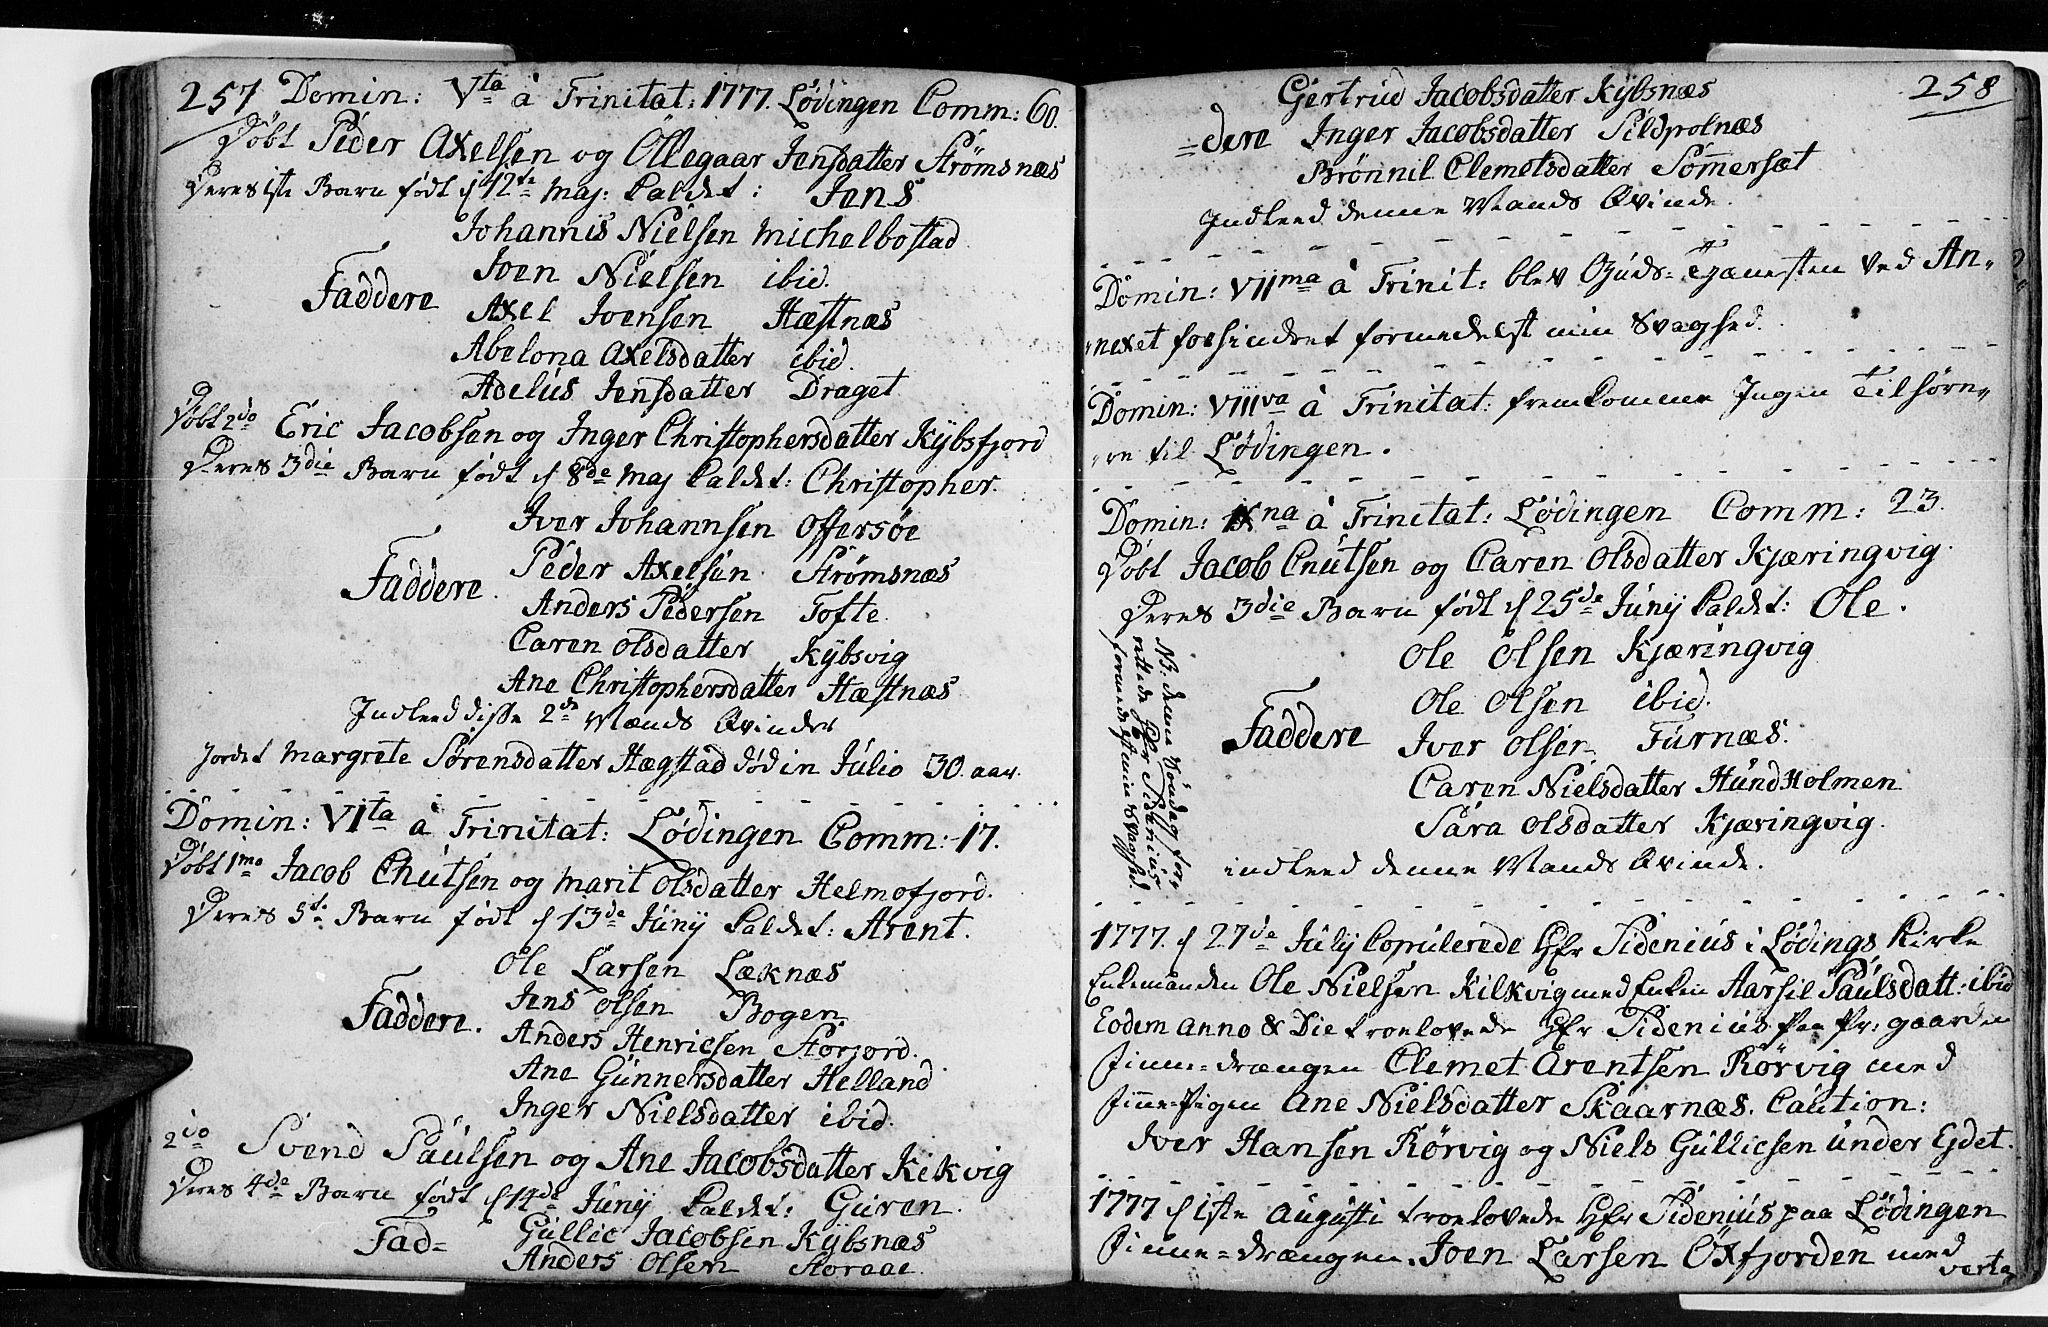 257 Domin: Vta à Trinitat: 1777. Lødingen Comm: 60.
Døbt Peder Axelsen og Ollegaar Jensdatter Strømsnæs
Deres 1ste Barn født d 12te Maj: kaldet: Jens
Johannis Nielsen Michelbostad
Joen Nielsen ibid.
Faddere Axel Joensen Hæstnæs
Abelona Axelsdatter ibid.
Adelüs Jensdatter Draget
Døbt 2do Eric Jacobsen og Inger Christophersdatter Kÿbsfjord
Deres 3die Barn født d 8de Maj kaldet: Christopher.
Iver Johannsen Offersøe
Faddere. Peder Axelsen Strømsnæs
Anders Pedersen Tofte.
Caren Olsdatter Kÿbsvig
Ane Christophersdatter Hæstnæs
Indleed disse 2de Mænds Qvinder
Jordet Margrete Sørensdatter Hægstad død in Julio 30. aar.
Domin: VIta à Trinitat: Lødingen Comm: 17.
Døbt 1mo Jacob Cnütsen og Marit Olsdatter Helmofjord.
Deres 5te Barn født d 13de Junÿ kaldet: Arent.
Ole Larsen Læknæs
Jens Olsen Bogen
Faddere. Anders Henricsen Storjord.
Ane Günnersdatter Helland
Inger Nielsdatter ibid.
2do Svend Paülsen og Ane Jacobsdatter Kilkvig
Deres 4de Barn født d 14de Junÿ kaldet: Guren.
Fad= Güllic Jacobsen Kÿbsnæs
Anders Olsen Storaae.
258
Gertrud Jacobsdatter Kÿbsnæs
=dere Inger Jacobsdatter Sildpolnæs
Brønnil Clemetsdatter Somersæt
Indleed denne Mands Qvinde.
Domin: VIIma à Trinit: blev Guds=Tjænesten ved An=
=nexet forhindret formedelst min Svaghed.
Domin: VIIIva à Trinitat: fremkomme Ingen Tilhøre=
=re til Lødingen.
Domin: IXna à Trinitat: Lødingen Comm: 23.
Døbt Jacob Cnütsen og Caren Olsdatter Kjæringvig.
Deres 3die Barn født d 25de Junÿ kaldet: Ole.
Ole Olsen Kjæringvig
Ole Olsen ibid.
Faddere Iver Olsen Fürnæs.
Caren Nielsdatter Hündholmen
Sara Olsdatter Kjæringvig.
indleed denne Mands Qvinde.
NB: denne Søndag for=
rettede Hr Sidenius
formedelst min Svaghed.
1777. d 27de Julÿ Copulerede Hr Sidenius i Lødings Kirke
Enkemanden Ole Nielsen Kilkvig med Enken Aarsil Paülsdatt: ibid
Eodem anno & Die troelovede Hr Sidenius paa Pr: gaarden
Finne=drængen Clemet Arentsen Rørvig med
Finne=Pigen Ane Nielsdatter Skaarnæs. Caution:
Iver Hansen Rørvig og Niels Güllicsen under Ejdet.
1777 d 1ste Augusti troelovede Hr Sidenius paa Lødingen
Finne=drængen. Joen Larsen Oxfjorden med
verte